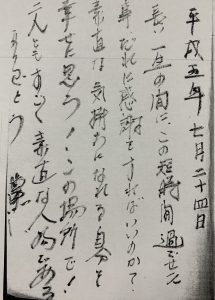 平成五年 七月二十四日
長い一生の間に、この短時間過ごせた
幸だれに感謝をすればいいのか？
素直な気持ちになれる自分を
幸せに思う！この場所で！
二人ともすごく素直な人間である
ありがとう